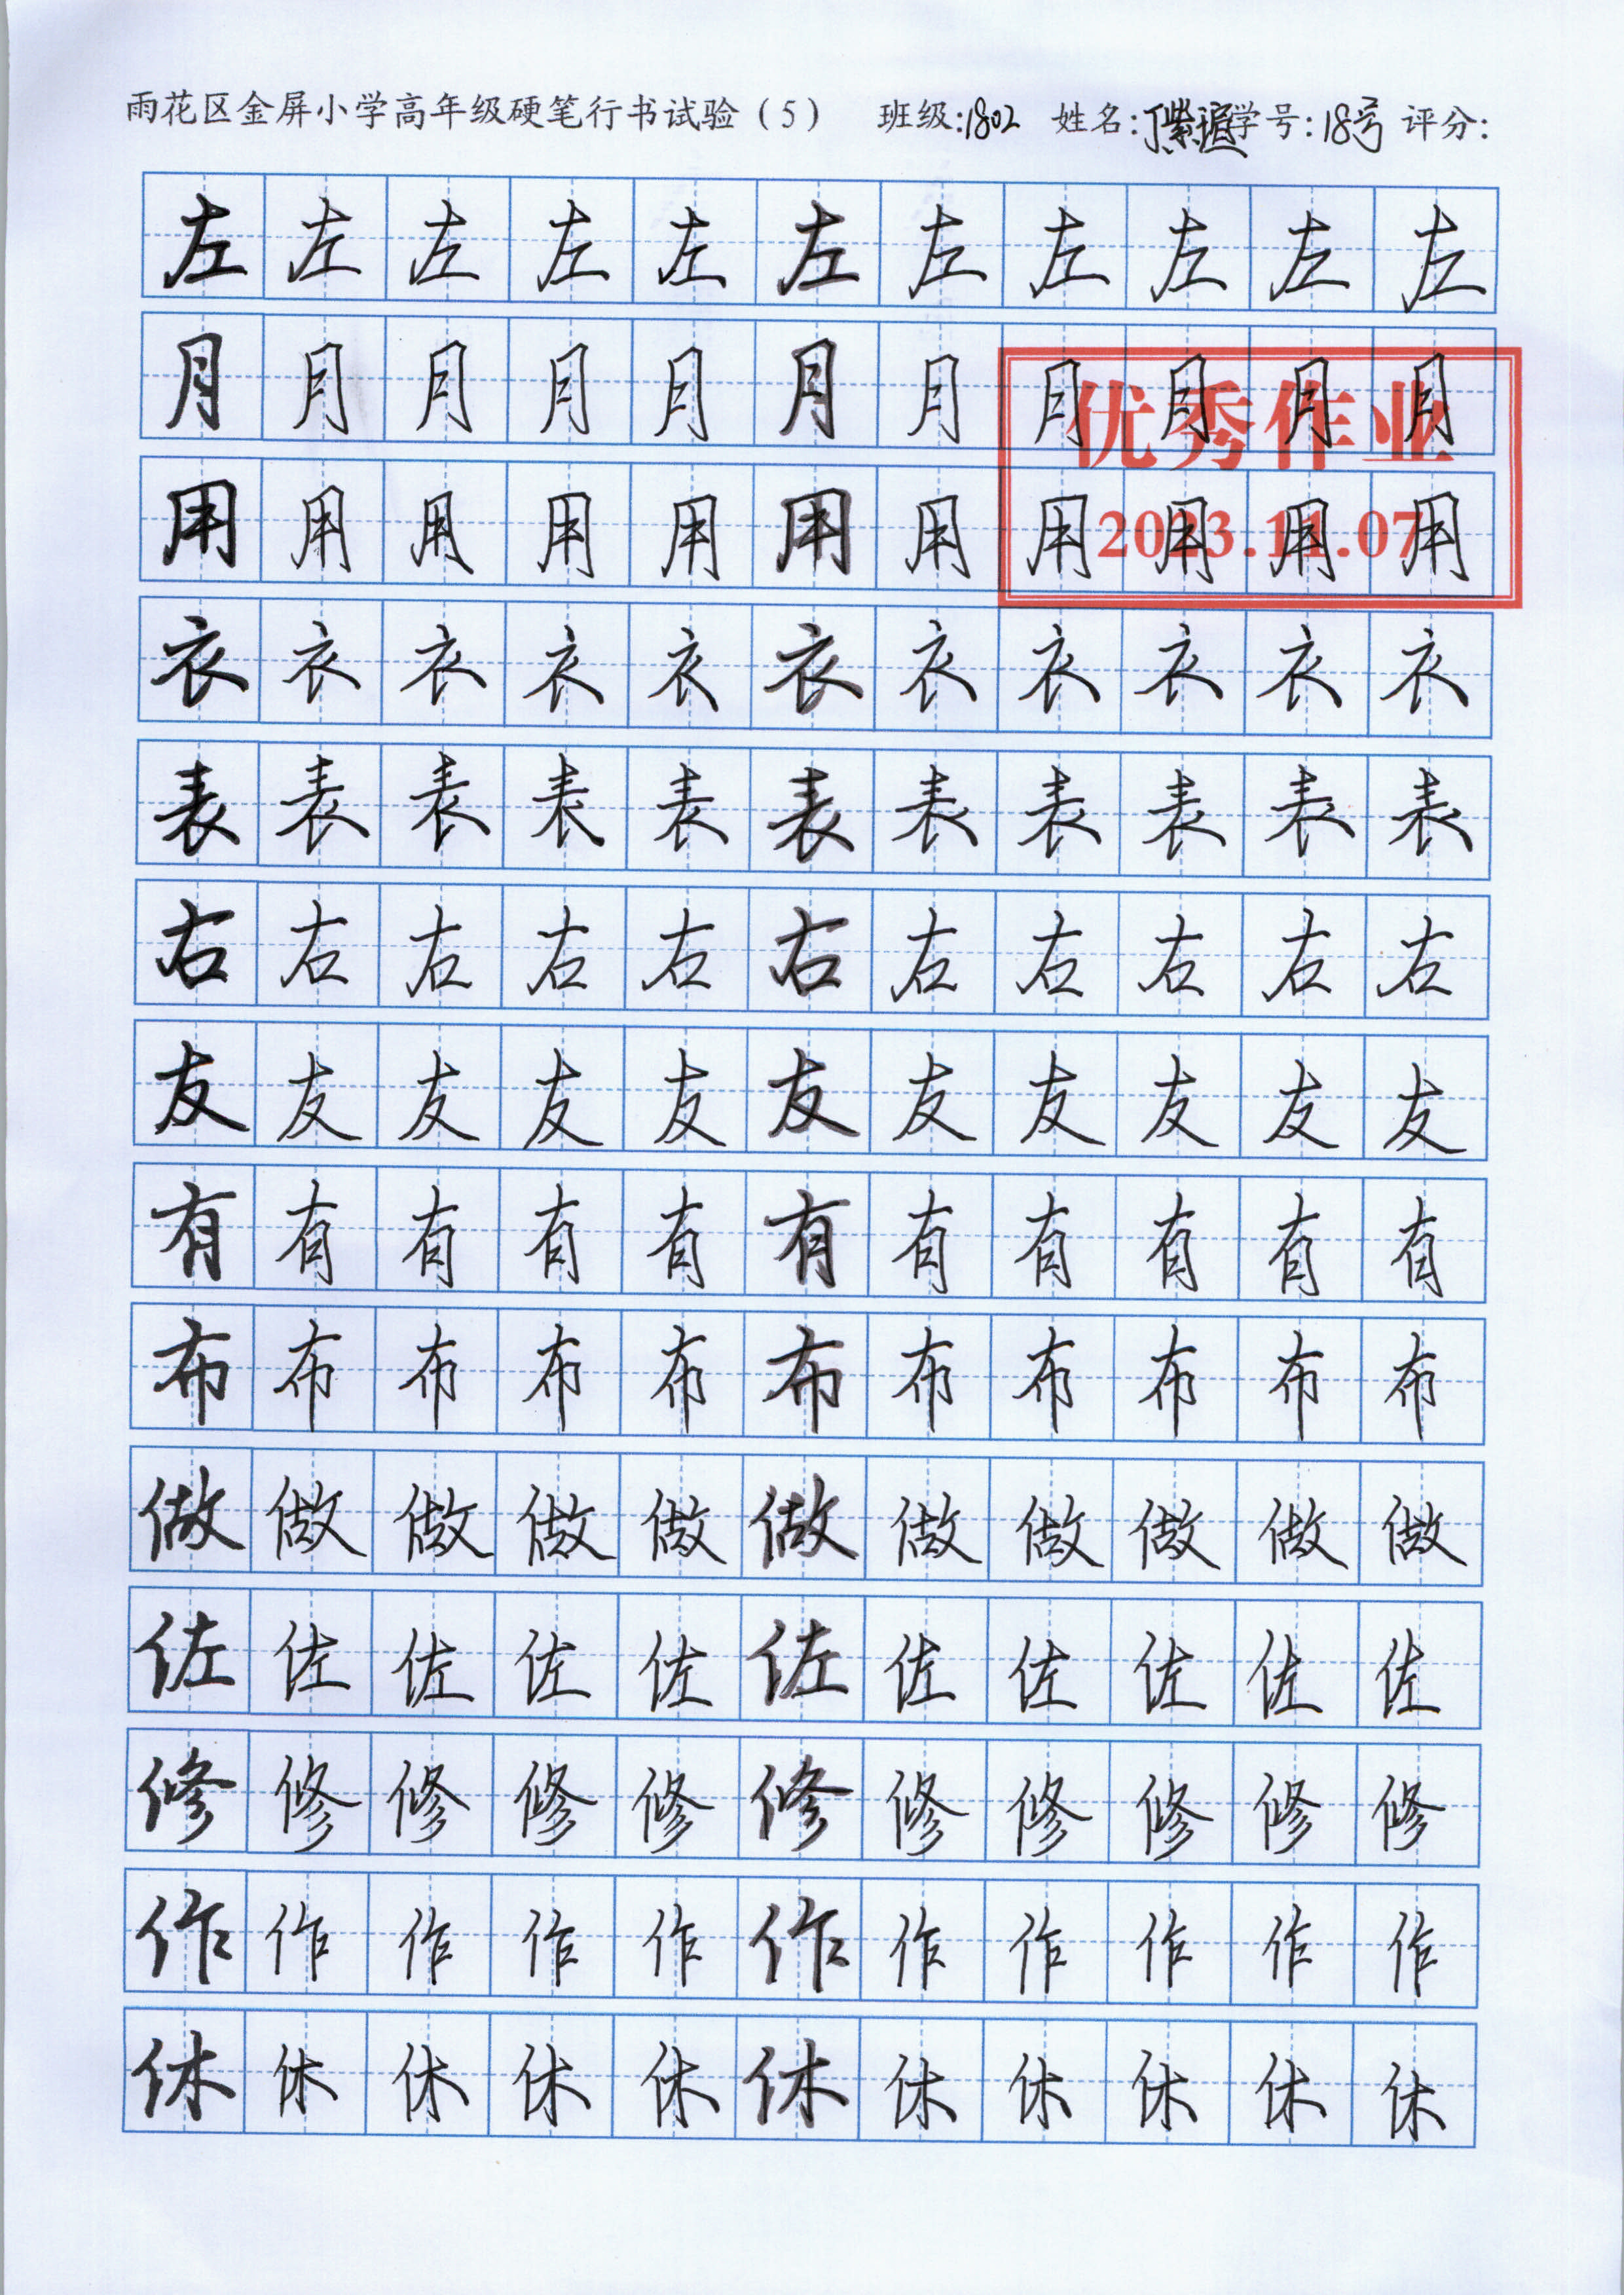 雨花区金屏小学高年级硬笔行书试验（5） 班级:1802 姓名:丁紫 学号:18号 评分:
左左左左左左左左左左左
月月月月月月月月月月月
优秀作业
用用用用用用用用用用用
2023.11.07
衣衣衣衣衣衣衣衣衣衣衣
表表表表表表表表表表表
右右右右右右右右右右右
友友友友友友友友友友友
有有有有有有有有有有有
布布布布布布布布布布布
做做做做做做做做做做做
佐佐佐佐佐佐佐佐佐佐佐
修修修修修修修修修修修
作作作作作作作作作作作
休休休休休休休休休休休